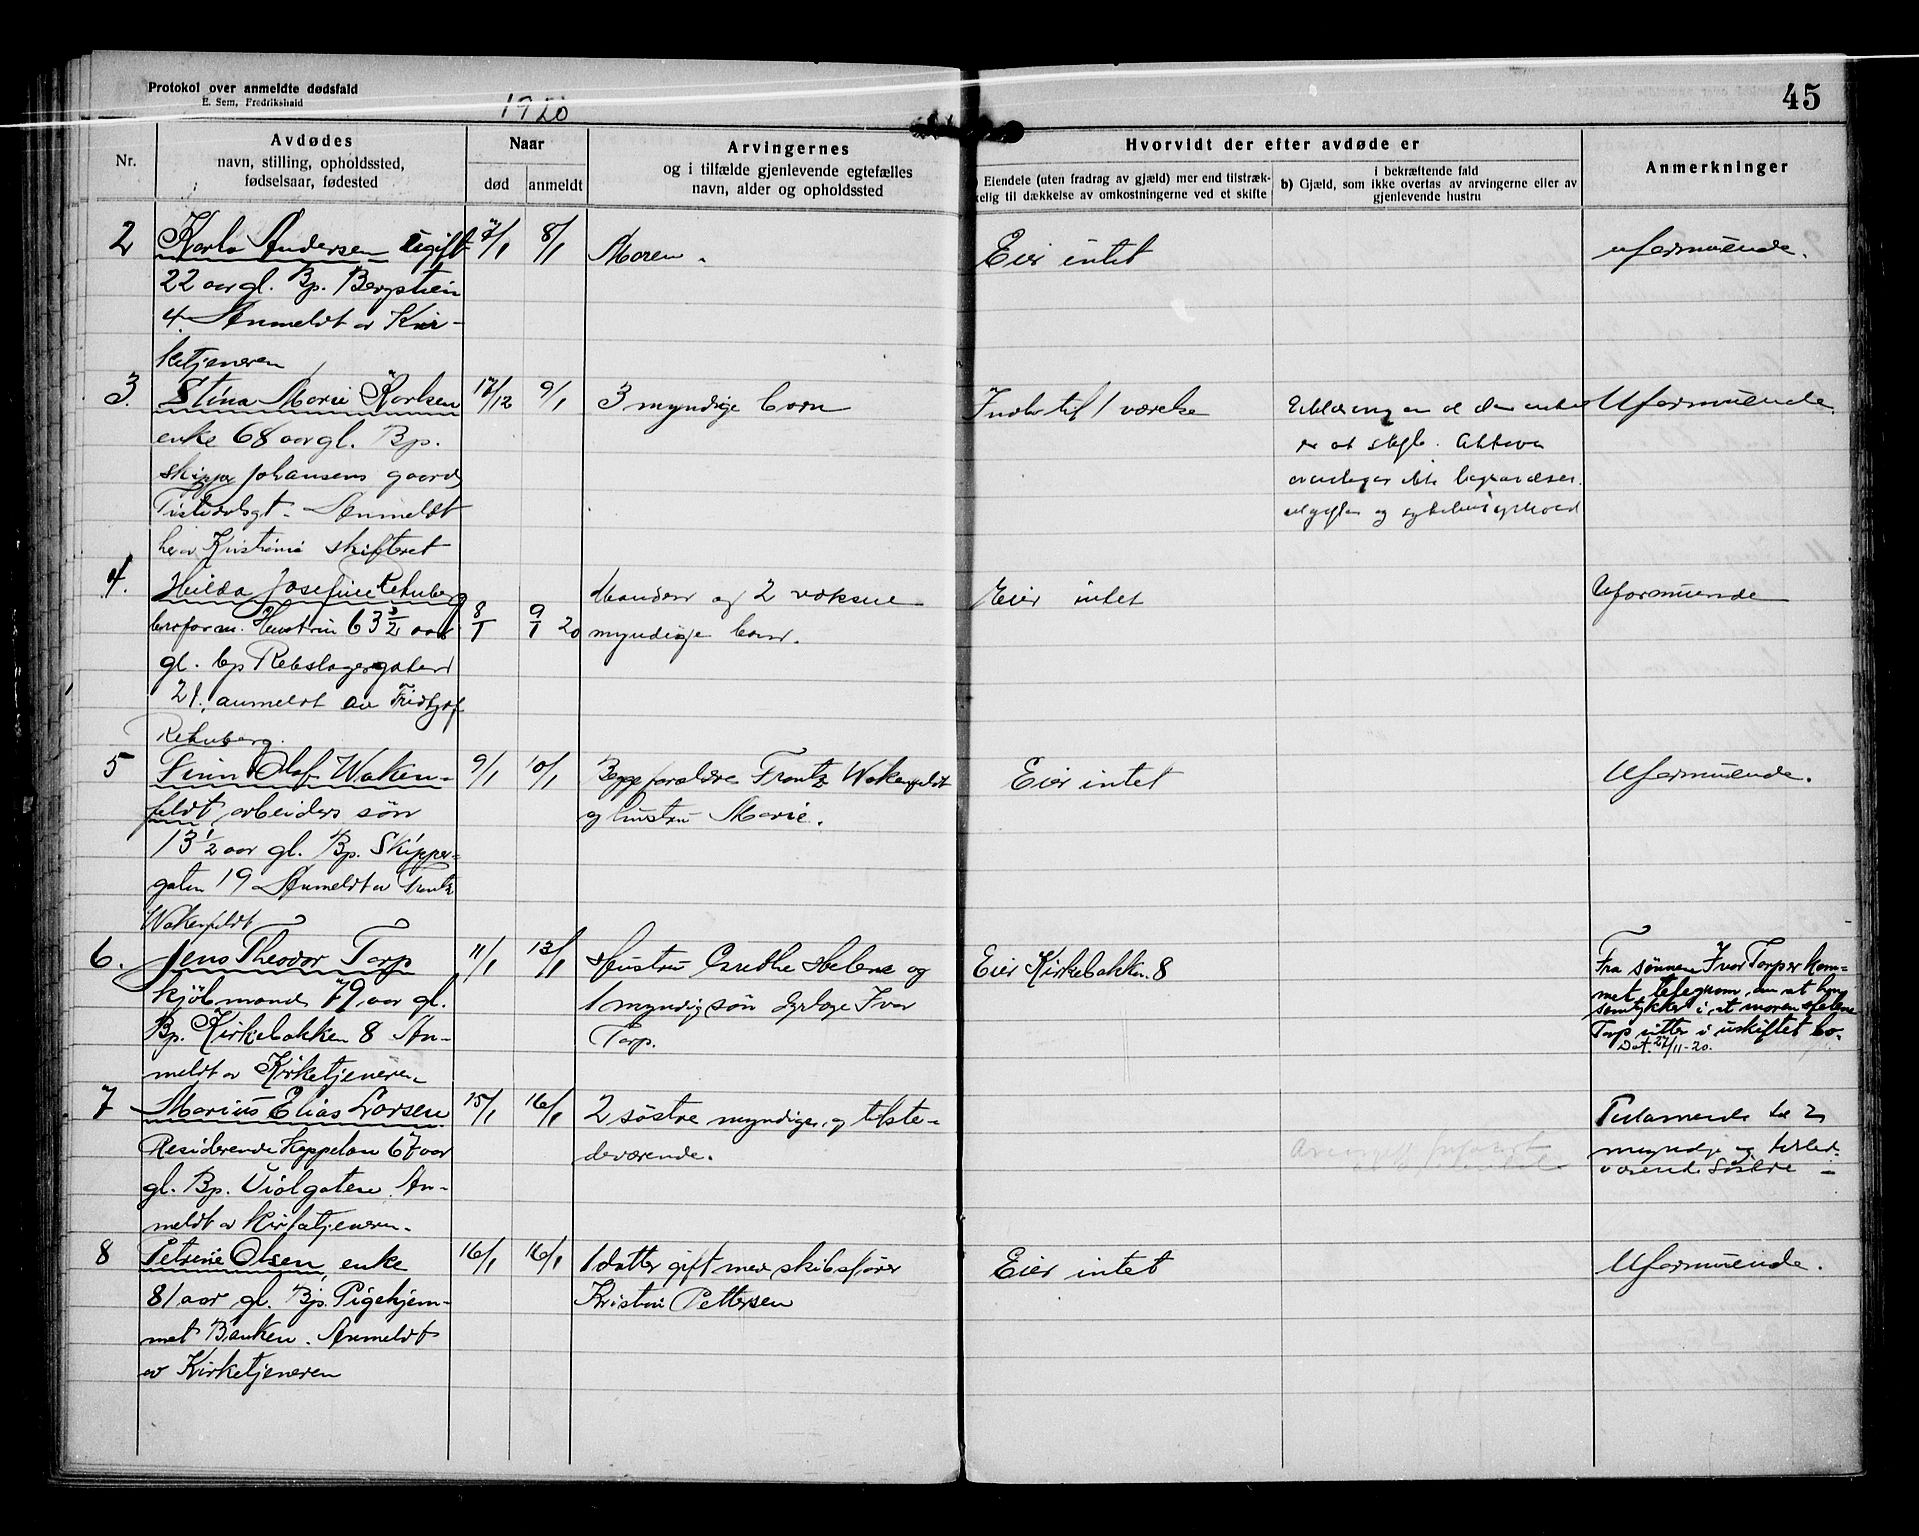 Protokol over anmeldte dødsfald
E. Sem, Fredrikshald
1920
45
Nr.
Avdødes
navn, stilling, opholdssted,
fødselsaar, fødested
Naar
død
anmeldt
Arvingernes
og i tilfælde gjenlevende egtefælles
navn, alder og opholdssted
Hvorvidt der efter avdøde er
Eiendele (uten fradrag av gjæld) mer end tilstræk-
kelig til dækkelse av omkostningerne ved et skifte
i bekræftende fald
b) Gjæld, som ikke overtas av arvingerne eller av
gjenlevende hustru
Anmerkninger
2
Karla Andersen ugift
22 aar gl. Bp. Bergstien
4. Anmeldt av Kir-
ketjeneren
7/1
8/1
Moren.
Eier intet
uformuende.
3.
Stina Marie Karlsen
enke 68 aar gl. Bp.
skipper Johansens gaard
Tistedalsgt. Anmeldt
her av Kristiania skifteret
17/12
9/1
3 myndige børn
Indbo til 1 værelse
er at
og
Uformuende.
4.
Hilda Josefine Rehnberg
Hustru 63 1/2 aar
gl. bp Rebslagergaten
21. anmeldt av Fridtjof
Rehnberg.
8/1
9/1 20
Manden og 2 voksne
myndige børn.
Eier intet
Uformuende
5
Finn Olaf Waken-
feldt, arbeiders søn
13 1/2 aar gl. Bp. Skipper-
gaten 19 Anmeldt av Frantz
Wakenfeldt
9/1
10/1
Begge forældre Frantz Wakenfeldt
og hustru Marie.
Eier intet
Uformuende.
6.
Jens Theodor Torp
kjøbmand 79 aar gl.
Bp. Kirkebakken 8 An-
meldt av Kirketjeneren
11/1
13/1
Hustru Helene og
1 myndig søn dyrlæge Ivar
Torp.
Eier Kirkebakken 8
Fra sønnen Ivar Torp er kom-
met telegram om at han
samtykker i, at moren Helene
Torp sitter i uskiftet bo.
Dat. 27/11-20.
7
Marius Elias Larsen
Residerende Kappelan 67 aar
gl. Bp. Violgaten An-
meldt av kirketjeneren.
15/1
16/1
2 søstre myndige og tilste-
deværende.
Testamente til 2
myndige og tilsted-
værende søstre
8
Petrine Olsen, enke
81 aar gl. Bp. Pigehjem-
met Banken. Anmeldt
av Kirketjeneren
16/1
16/1
1 datter gift med skibsfører
Kristian Pettersen
Eier intet
Uformuende.